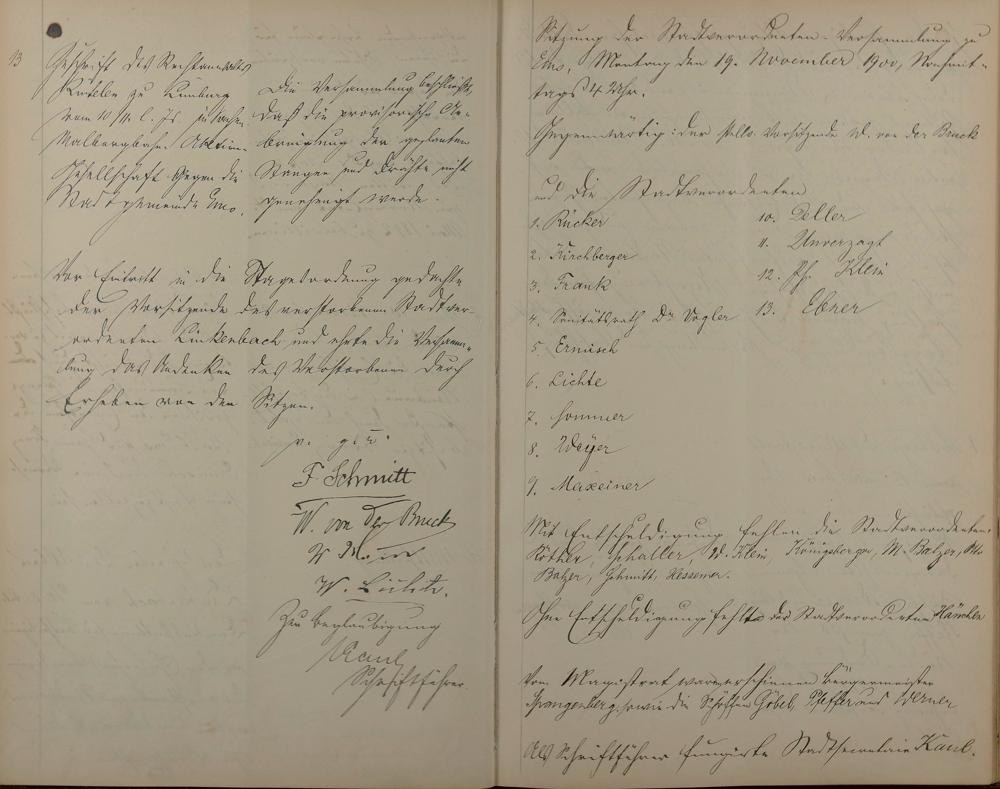 13
Zuschrift des Rechtsanwalts
zu Limburg
vom 10/11. l. Js. in Sachen
Malbergbahn Aktien-
Gesellschaft gegen die
Stadtgemeinde Ems.
Die Versammlung beschließt,
daß die provisorische An-
bringung der geplanten
Stangen und Drähte nicht
genehmigt werde.
Vor Eintritt in die Tagesordnung gedachte
der Vorsitzende des verstorbenen Stadtver-
ordneten Linkenbach und ehrte die Versamm-
lung das Andenken des Verstorbenen durch
Erheben von den Sitzen.
v. g. u.
F. Schmitt
W. von der Bruck
W.
Zur Beglaubigung
Kaul
Schriftführer.
Sitzung der Stadtverordneten-Versammlung zu
Ems, Montag den 19. November 1900, Nachmit-
tags 4 Uhr.
Gegenwärtig: der stellv. Vorsitzende W. von der Bruck
und die Stadtverordneten
1. Rücker
2. Kirchberger
3. Frank
4. Sanitätsrath Dr. Vogler
5. Ernisch
6. Lichte
7. Sommer
8. Weyer
9. Maxeiner
10. Deller
11. Unverzagt
12. Ph. Klein
13. Ebner
Mit Entschuldigung fehlen die Stadtverordneten:
Schaller, W. Klein, Königsberger, M. Balzer,
Balzer, Schmitt, Hessemer.
Ohne Entschuldigung fehlte der Stadtverordnete Hänchen
Vom Magistrat waren erschienen Bürgermeister
Spangenberg, sowie die Schöffen Göbel, Pfeffer und Werner
Als Schriftführer fungirte Stadtsecretair Kaul.